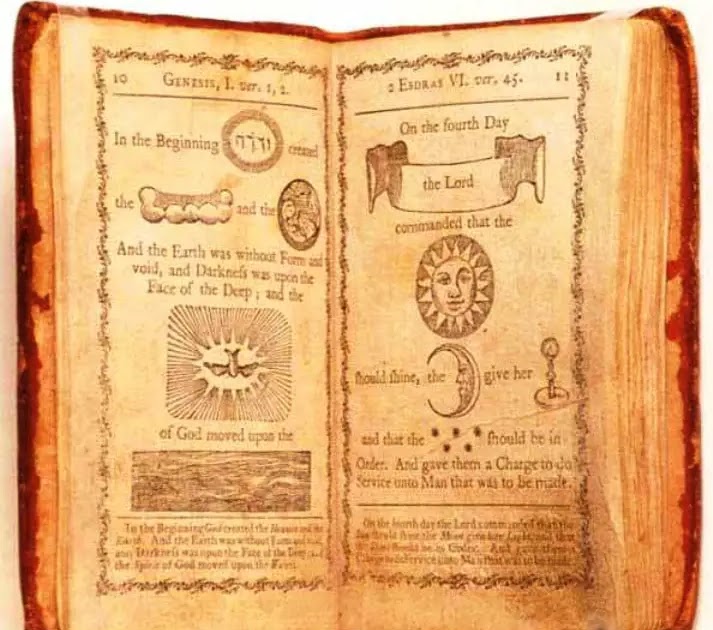 10 GENESIS, I. ver. 1, 2.
In the Beginning יהוה created
the and the
And the Earth was without Form and
void, and Darkneſs was upon the
Face of the Deep; and the
of God moved upon the
In the Beginning God created the Heaven and the
Earth. And the Earth was without Form and void,
and Darkneſs was upon the Face of the Deep; and
the Spirit of God moved upon the Water.
2 ESDRAS VI. ver. 45. 11
On the fourth Day
the Lord
commanded that the
ſhould ſhine, the give her
and that the ſhould be in
Order. And gave them a Charge to do
Service unto Man that was to be made.
On the fourth day the Lord commanded that the
Sun ſhould ſhine the Moon give her Light, and that
the Stars ſhould be in Order. And gave them a
Charge to do Service unto Man that was to be made.